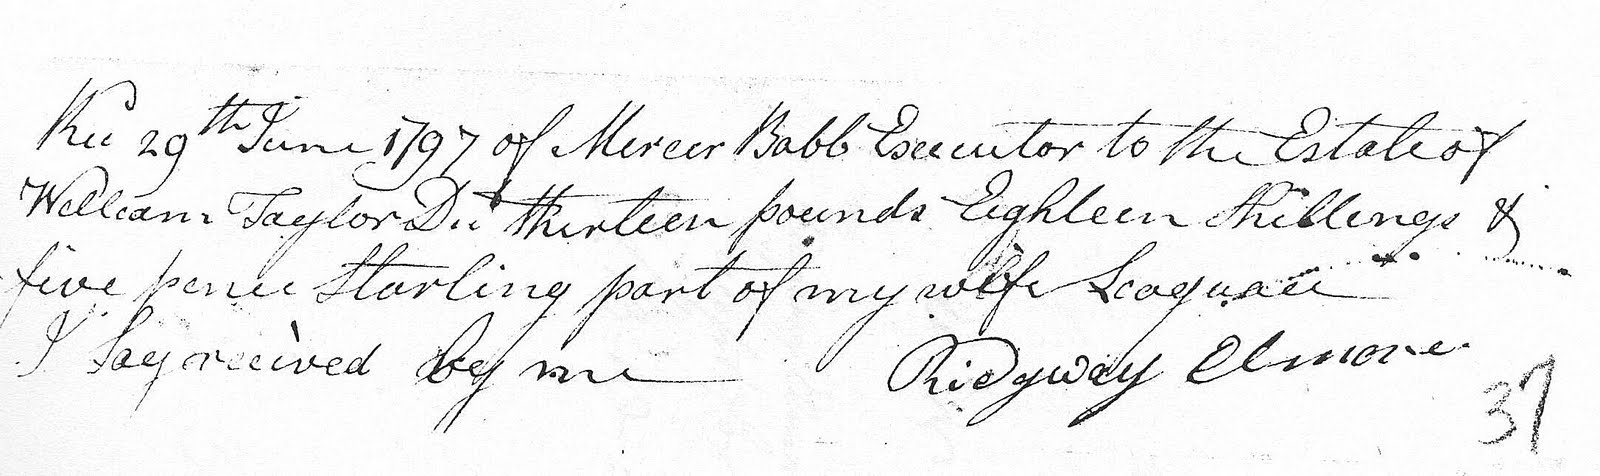 Rec 29th June 1797 of Mercer Babb Executor to the Estate of
William Taylor Dec.d thirteen pounds Eighteen Shillings &
five pence Starling part of my wife Leaguaci
I Say received by me Ridgway Elmore
37